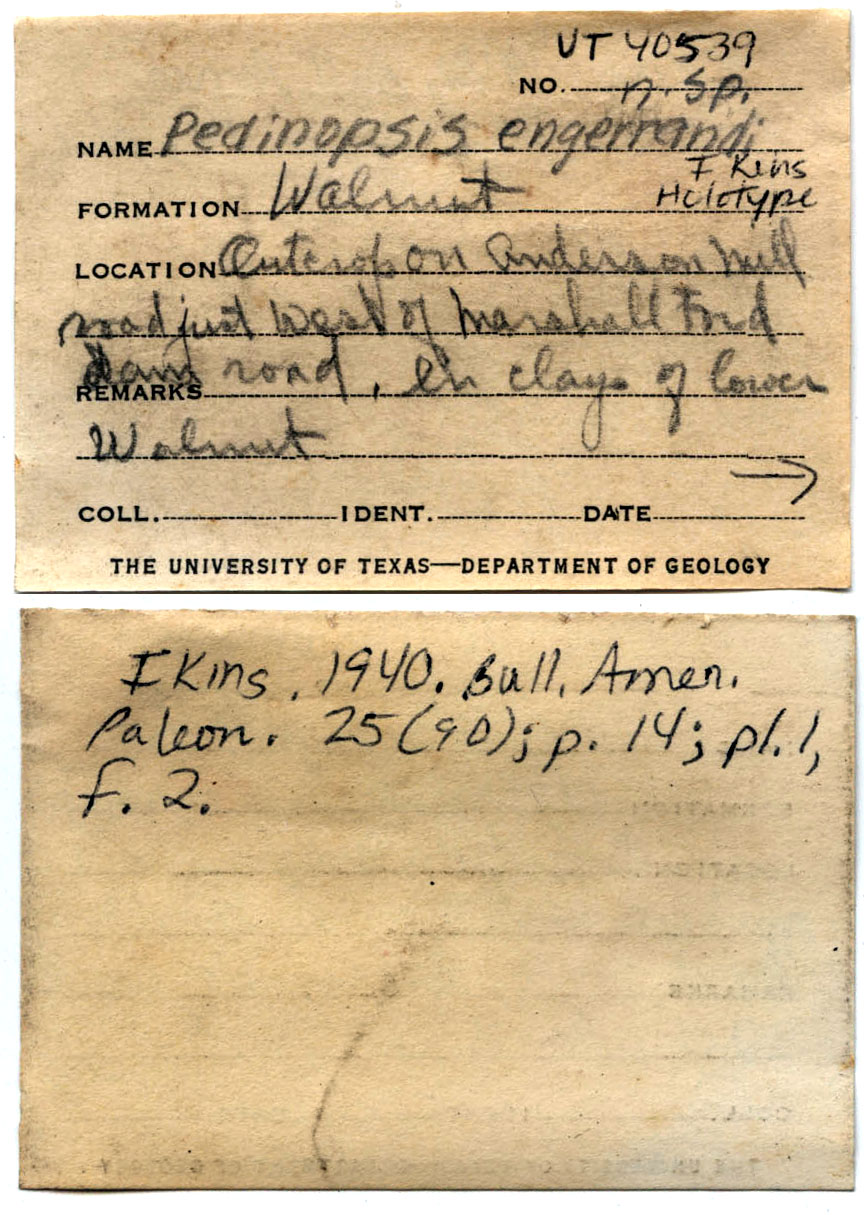 UT 40539
NO. n. sp.
NAME Pedinopsis engerrandi
I Kins
FORMATION Walnut Holotype
LOCATION Outcrop on Anderson Mill
road just West of Marshall Ford
REMARKS dam road, in clays of lower
Walnut
→
COLL. IDENT. DATE
THE UNIVERSITY OF TEXAS—DEPARTMENT OF GEOLOGY
IKins, 1940. Bull. Amer.
Paleon. 25(90); p. 14; pl. 1,
f. 2.